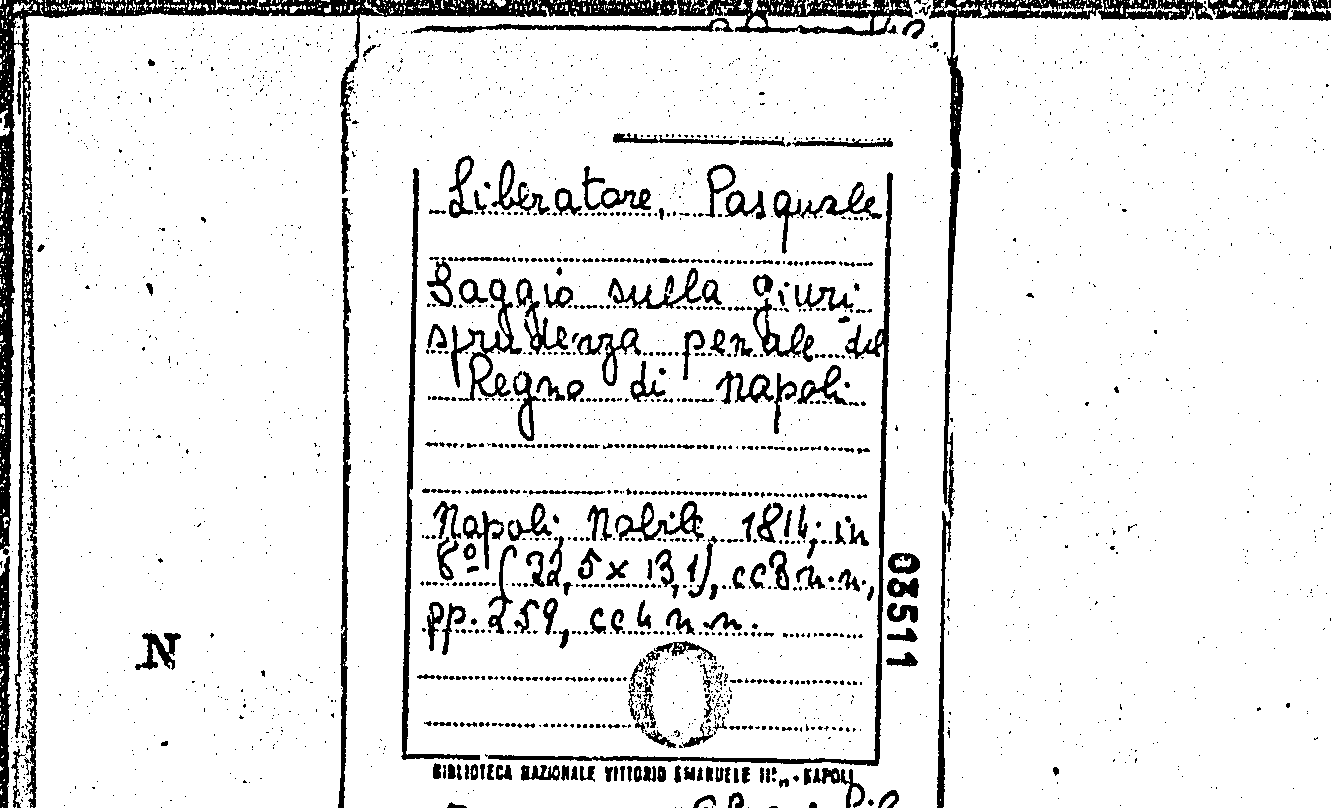 Liberatore, Pasquale
Saggio sulla giuri-
sprudenza penale del
Regno di Napoli
Napoli, Nobile, 1814; in
8º (22,5 x 13,1), cc 3 n.n.,
pp. 259, cc 4 n.n.
03511
N
BIBLIOTECA NAZIONALE VITTORIO EMANUELE III„ - NAPOLI